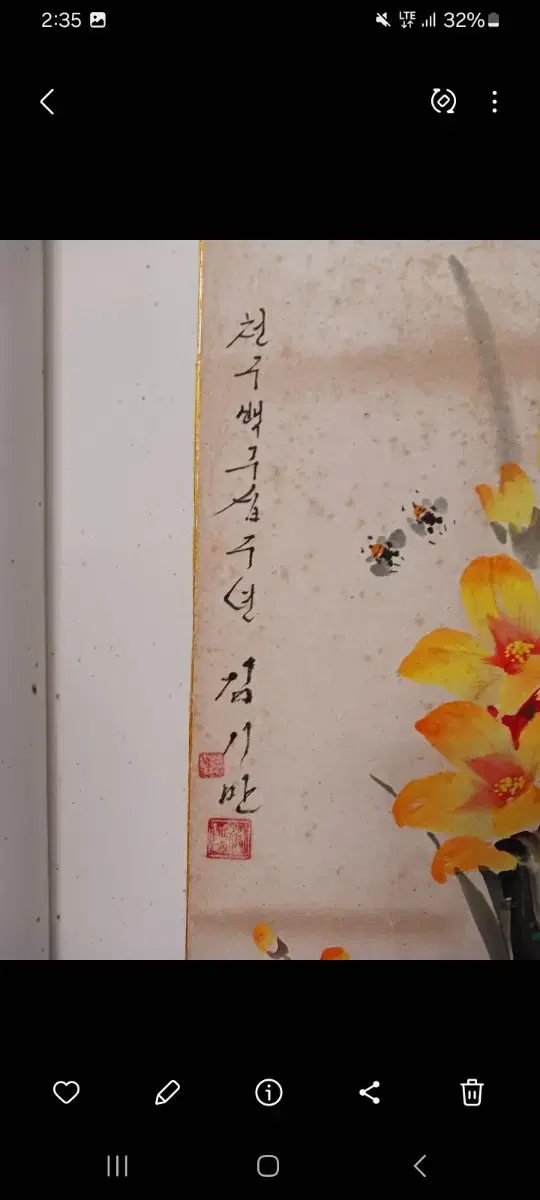 2:35
LTE 32%
천구백구십구년 김기만